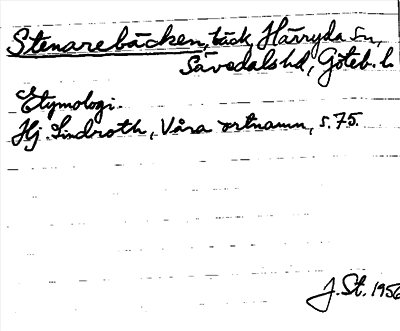 Stenarebäcken, bäck, Härryda sn,
Sävedals hd, Göteb. l.
Etymologi.
Hj. Lindroth, Våra ortnamn, s. 75.
J. St. 1956